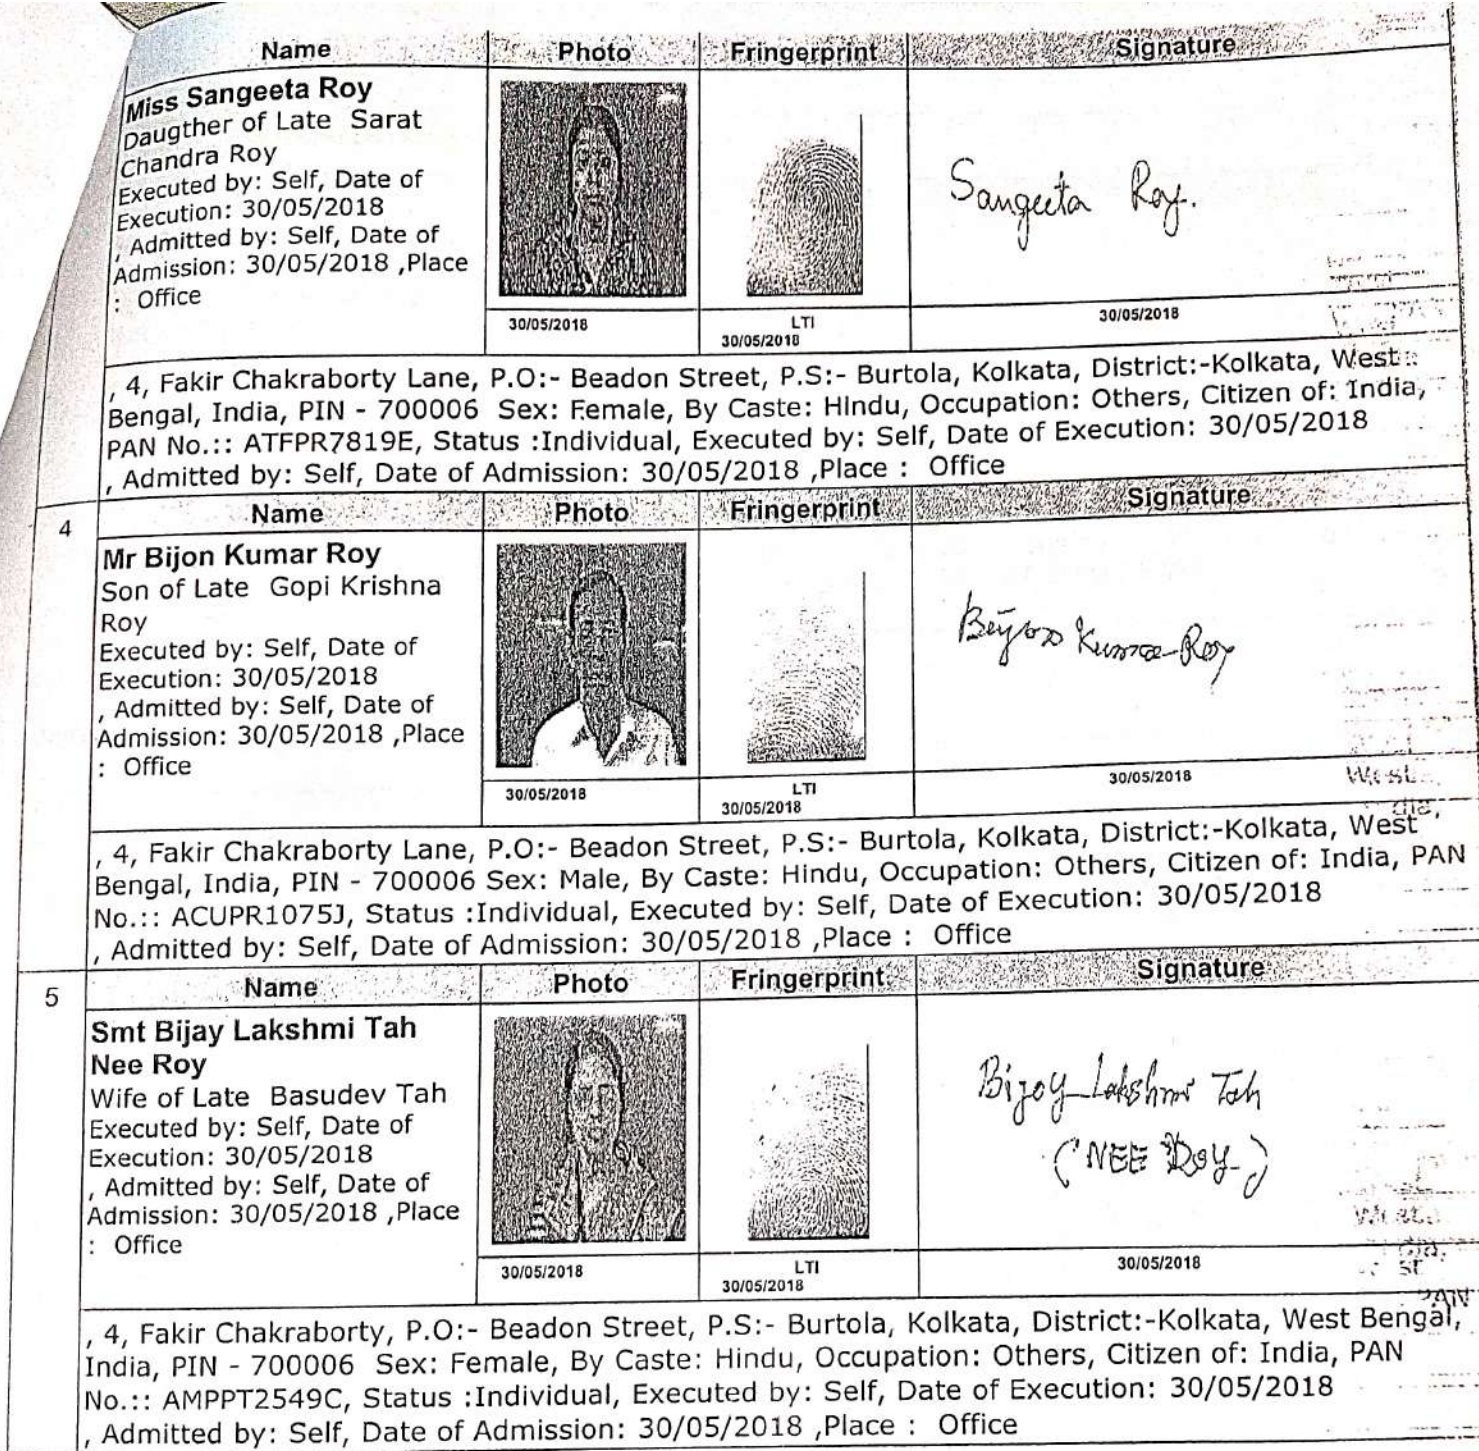 Name Photo Fringerprint Signature
Miss Sangeeta Roy
Daugther of Late Sarat
Chandra Roy
Executed by: Self, Date of
Execution: 30/05/2018
, Admitted by: Self, Date of
Admission: 30/05/2018 ,Place
: Office
Sangeeta Roy.
30/05/2018 LTI 30/05/2018
30/05/2018
, 4, Fakir Chakraborty Lane, P.O:- Beadon Street, P.S:- Burtola, Kolkata, District:-Kolkata, West
Bengal, India, PIN - 700006 Sex: Female, By Caste: Hindu, Occupation: Others, Citizen of: India,
PAN No.:: ATFPR7819E, Status :Individual, Executed by: Self, Date of Execution: 30/05/2018
, Admitted by: Self, Date of Admission: 30/05/2018 ,Place : Office
4 Name Photo Fringerprint Signature
Mr Bijon Kumar Roy
Son of Late Gopi Krishna
Roy
Executed by: Self, Date of
Execution: 30/05/2018
, Admitted by: Self, Date of
Admission: 30/05/2018 ,Place
: Office
Kumar Roy
30/05/2018 LTI 30/05/2018
30/05/2018
, 4, Fakir Chakraborty Lane, P.O:- Beadon Street, P.S:- Burtola, Kolkata, District:-Kolkata, West
Bengal, India, PIN - 700006 Sex: Male, By Caste: Hindu, Occupation: Others, Citizen of: India, PAN
No.:: ACUPR1075J, Status :Individual, Executed by: Self, Date of Execution: 30/05/2018
, Admitted by: Self, Date of Admission: 30/05/2018 ,Place : Office
5 Name Photo Fringerprint Signature
Smt Bijay Lakshmi Tah
Nee Roy
Wife of Late Basudev Tah
Executed by: Self, Date of
Execution: 30/05/2018
, Admitted by: Self, Date of
Admission: 30/05/2018 ,Place
: Office
Bijoy Lakshmi Tah
(NEE Roy)
30/05/2018 LTI 30/05/2018
30/05/2018
, 4, Fakir Chakraborty, P.O:- Beadon Street, P.S:- Burtola, Kolkata, District:-Kolkata, West Bengal,
India, PIN - 700006 Sex: Female, By Caste: Hindu, Occupation: Others, Citizen of: India, PAN
No.:: AMPPT2549C, Status :Individual, Executed by: Self, Date of Execution: 30/05/2018
, Admitted by: Self, Date of Admission: 30/05/2018 ,Place : Office